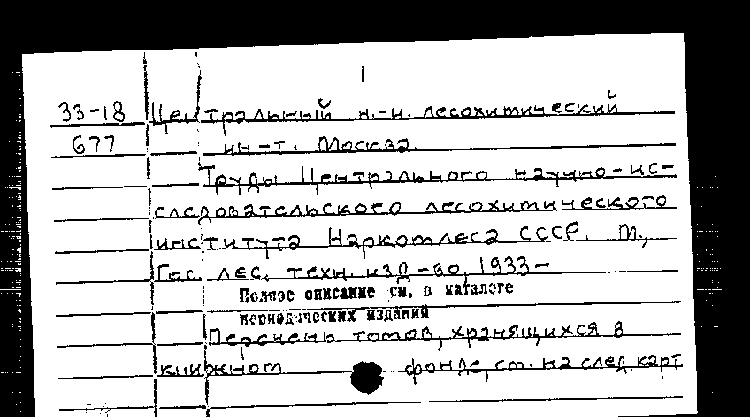 1
33-18 Центральный н.-и. лесохимический
677 ин-т. Москва.
Труды Центрального научно-ис-
следовательского лесохимического
института Наркомлеса СССР. М.,
Гос. лес. техн. изд-во, 1933-
Полное описание см. в каталоге
периодических изданий
Перечень томов, хранящихся в
книжном фонде, см. на след. карт